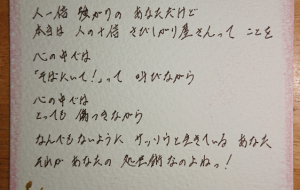 人一倍 強がりの あなただけど
本当は 人の十倍 さびしがり屋さんって ことを
心の中では
「そばにいて!」って 叫びながら
心の中では
とっても 傷つきながら
なんでもないように ケッソウと生きている あなた
それが あなたの 処世術なのよねっ!